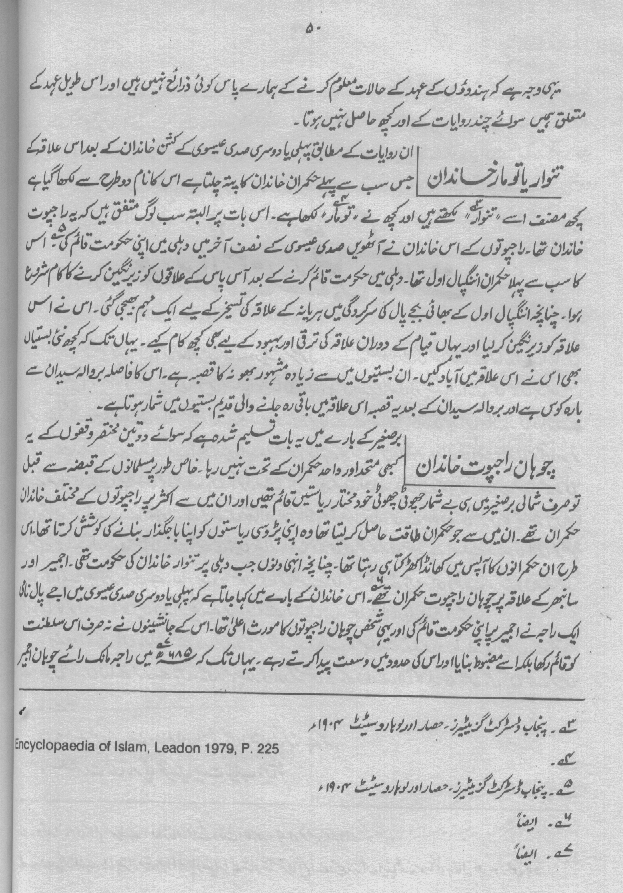 ۵۰
یہی وجہ ہے کہ ہندوؤں کے عہد کے حالات معلوم کرنے کے ہمارے پاس کوئی ذرائع نہیں ہیں اور اس طویل عہد کے
متعلق ہمیں سوائے چند روایات کے اور کچھ حاصل نہیں ہوتا۔
تنوار یا تومار خاندان
ان روایات کے مطابق پہلی یا دوسری صدی عیسوی کے کشن خاندان کے بعد اس علاقہ کے
جس سب سے پہلے حکمران خاندان کا پتہ چلتا ہے اس کا نام دو طرح سے لکھا گیا ہے
کچھ مصنف اسے "تنوار"۳ لکھتے ہیں اور کچھ نے "تومار"۴ لکھا ہے۔ اس بات پر البتہ سب لوگ متفق ہیں کہ یہ راجپوت
خاندان تھا۔ راجپوتوں کے اس خاندان نے آٹھویں صدی عیسوی کے نصف آخر میں دہلی میں اپنی حکومت قائم کی۵ اس
کا سب سے پہلا حکمران اننگپال اول تھا۔ دہلی میں حکومت قائم کرنے کے بعد آس پاس کے علاقوں کو زیرنگین کرنے کا کام شروع
ہوا۔ چنانچہ اننگپال اول کے بھائی بجے پال کی سرکردگی میں ہریانہ کے علاقہ کی تسخیر کے لیے ایک مہم بھیجی گئی۔ اس نے اس
علاقہ کو زیرنگین کر لیا اور یہاں قیام کے دوران علاقہ کی ترقی اور بہبود کے لیے بھی کچھ کام کیے۔ یہاں تک کہ کچھ نئی بستیاں
بھی اس نے اس علاقہ میں آباد کیں۔ ان بستیوں میں سے زیادہ مشہور بھونہ کا قصبہ ہے۔ اس کا فاصلہ بروالہ سیدان سے
بارہ کوس ہے اور بروالہ سیدان کے بعد یہ قصبہ اس علاقہ میں باقی رہ جانے والی قدیم بستیوں میں شمار ہوتا ہے۔
چوہان راجپوت خاندان
برصغیر کے بارے میں یہ بات تسلیم شدہ ہے کہ سوائے دو تین مختصر وقفوں کے یہ
کبھی متحد اور واحد حکمران کے تحت نہیں رہا۔ خاص طور پر مسلمانوں کے قبضہ سے قبل
تو صرف شمالی برصغیر میں ہی بے شمار چھوٹی چھوٹی خود مختار ریاستیں قائم تھیں اور ان میں سے اکثر پر راجپوتوں کے مختلف خاندان
حکمران تھے۔ ان میں سے جو حکمران طاقت حاصل کر لیتا تھا وہ اپنی پڑوسی ریاستوں کو اپنا باجگذار بنانے کی کوشش کرتا تھا۔ اس
طرح ان حکمرانوں کا آپس میں کھانڈا کھڑکتا ہی رہتا تھا۔ چنانچہ انہی دنوں جب دہلی پر تنوار خاندان کی حکومت تھی۔ اجمیر اور
سانبھر کے علاقہ پر چوہان راجپوت حکمران تھے۶۔ اس خاندان کے بارے میں کہا جاتا ہے کہ پہلی یا دوسری صدی عیسوی میں اجے پال نامی
ایک راجہ نے اجمیر پر اپنی حکومت قائم کی اور یہی شخص چوہان راجپوتوں کا مورث اعلیٰ تھا۔ اس کے جانشینوں نے نہ صرف اس سلطنت
کو قائم رکھا بلکہ اسے مضبوط بنایا اور اس کی حدود میں وسعت پیدا کرتے رہے۔ یہاں تک کہ ۶۸۵ء۷ میں راجہ مانک رائے چوہان اجمیر
۳ے۔ پنجاب ڈسٹرکٹ گزیٹیرز۔ حصار اور لوہارو سٹیٹ ۱۹۰۴ء
۴ے۔ Encyclopaedia of Islam, Leadon 1979, P. 225
۵ے۔ پنجاب ڈسٹرکٹ گزیٹیرز۔ حصار اور لوہارو سٹیٹ ۱۹۰۴ء
۶ے۔ ایضاً
۷ے۔ ایضاً